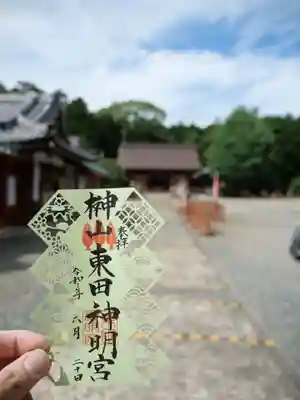 奉拝
榊山東田神明宮
令和年六月二十日